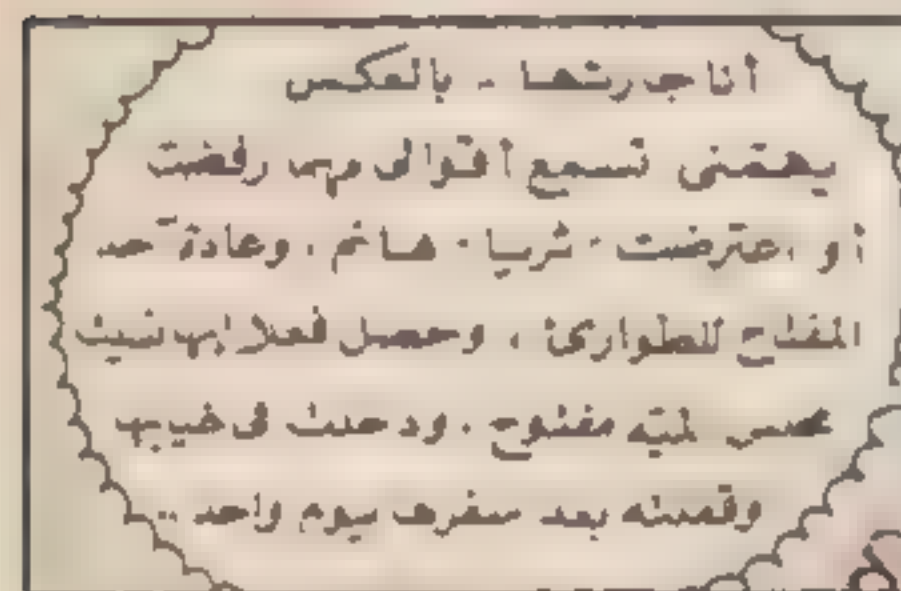 أنا جررتها - بالعكس
تسمع أقوالى مهما رفضت
أو اعترضت " ثريا " هانم . وعادة
المفتاح للطوارئ ، وحصل فعلا إنها نسيت
محبس مفتوح . ودخلت فى غيابها
وقفلته بعد سفرها بيوم واحد ..